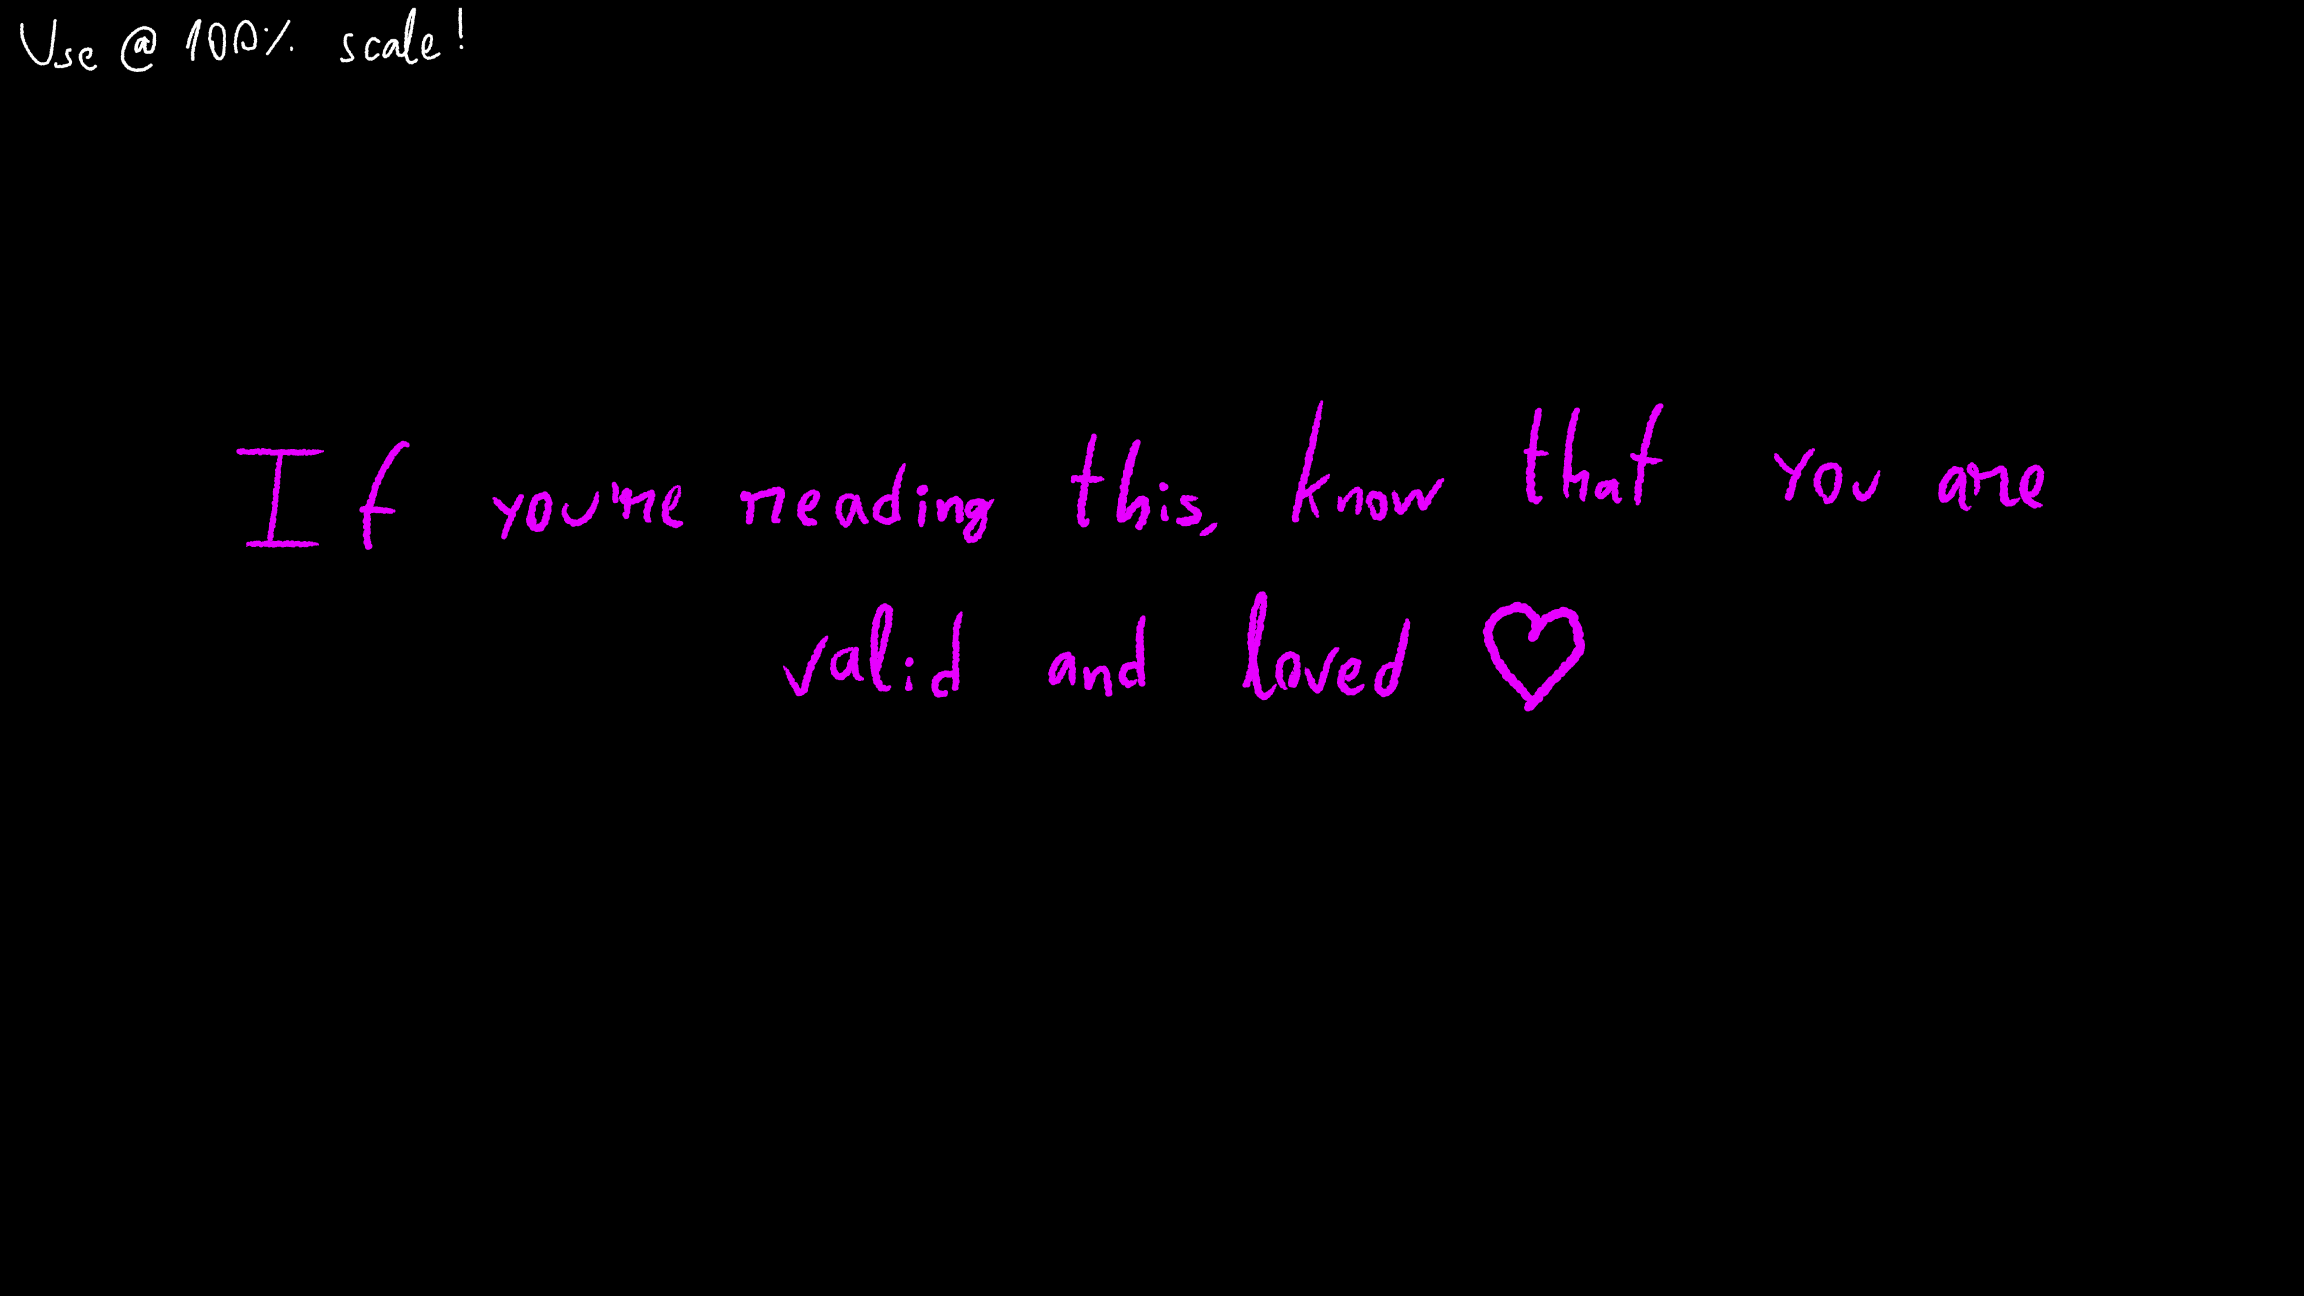 Use @ 100% scale!
If you're reading this, know that you are
valid and loved ♡